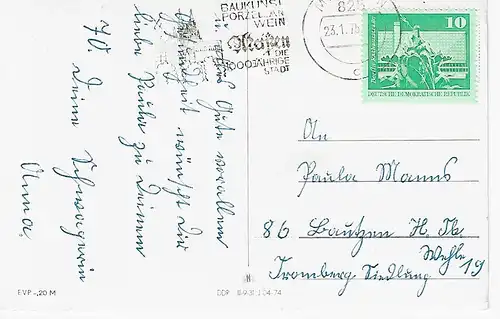 BAUKUNST
PORZELLAN
WEIN
Meißen
DIE
1000JÄHRIGE
STADT
825
23.1.
10
DEUTSCHE DEMOKRATISCHE REPUBLIK
Alles Gute vor allem
Gesundheit wünscht Dir
liebe Paula zu Deinem
70. Deine Schwägerin
Anna.
An
Paula Manns
86 Bautzen H. Str.
Wehle 19
Tromberg Siedlung
EVP -,20 M
DDR 04 74